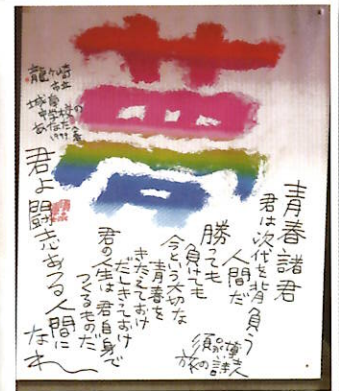 夢
青春諸君
君は次代を背負う
人間だ
勝っても
負けても
今という大切な
青春を
きたえておけ
だしきっておけ
君の人生は君自身で
つくるものだ
君よ闘志ある人間に
なれ
旅の詩人
須永博士
龍ヶ崎市立
城